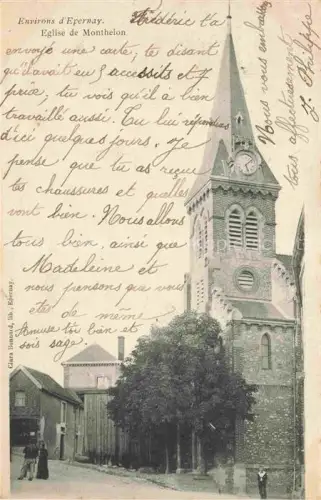 Environs d'Epernay.
Eglise de Monthelon
Frédéric t'a
envoyé une carte; te disant
qu'il avait eu 5 accessits et
prix; tu vois qu'il a bien
travaillé aussi. Tu lui répondras
d'ici quelques jours. Je
pense que tu as reçu
tes chaussures et qu'elles
vont bien. Nous allons
tous bien, ainsi que
Madeleine et
nous pensons que vous
êtes de même.
Amuse toi bien et
sois sage.
Nous vous embrassons
tous affectueusement
J. Philippe
Clara Bonnard, lib., Epernay.